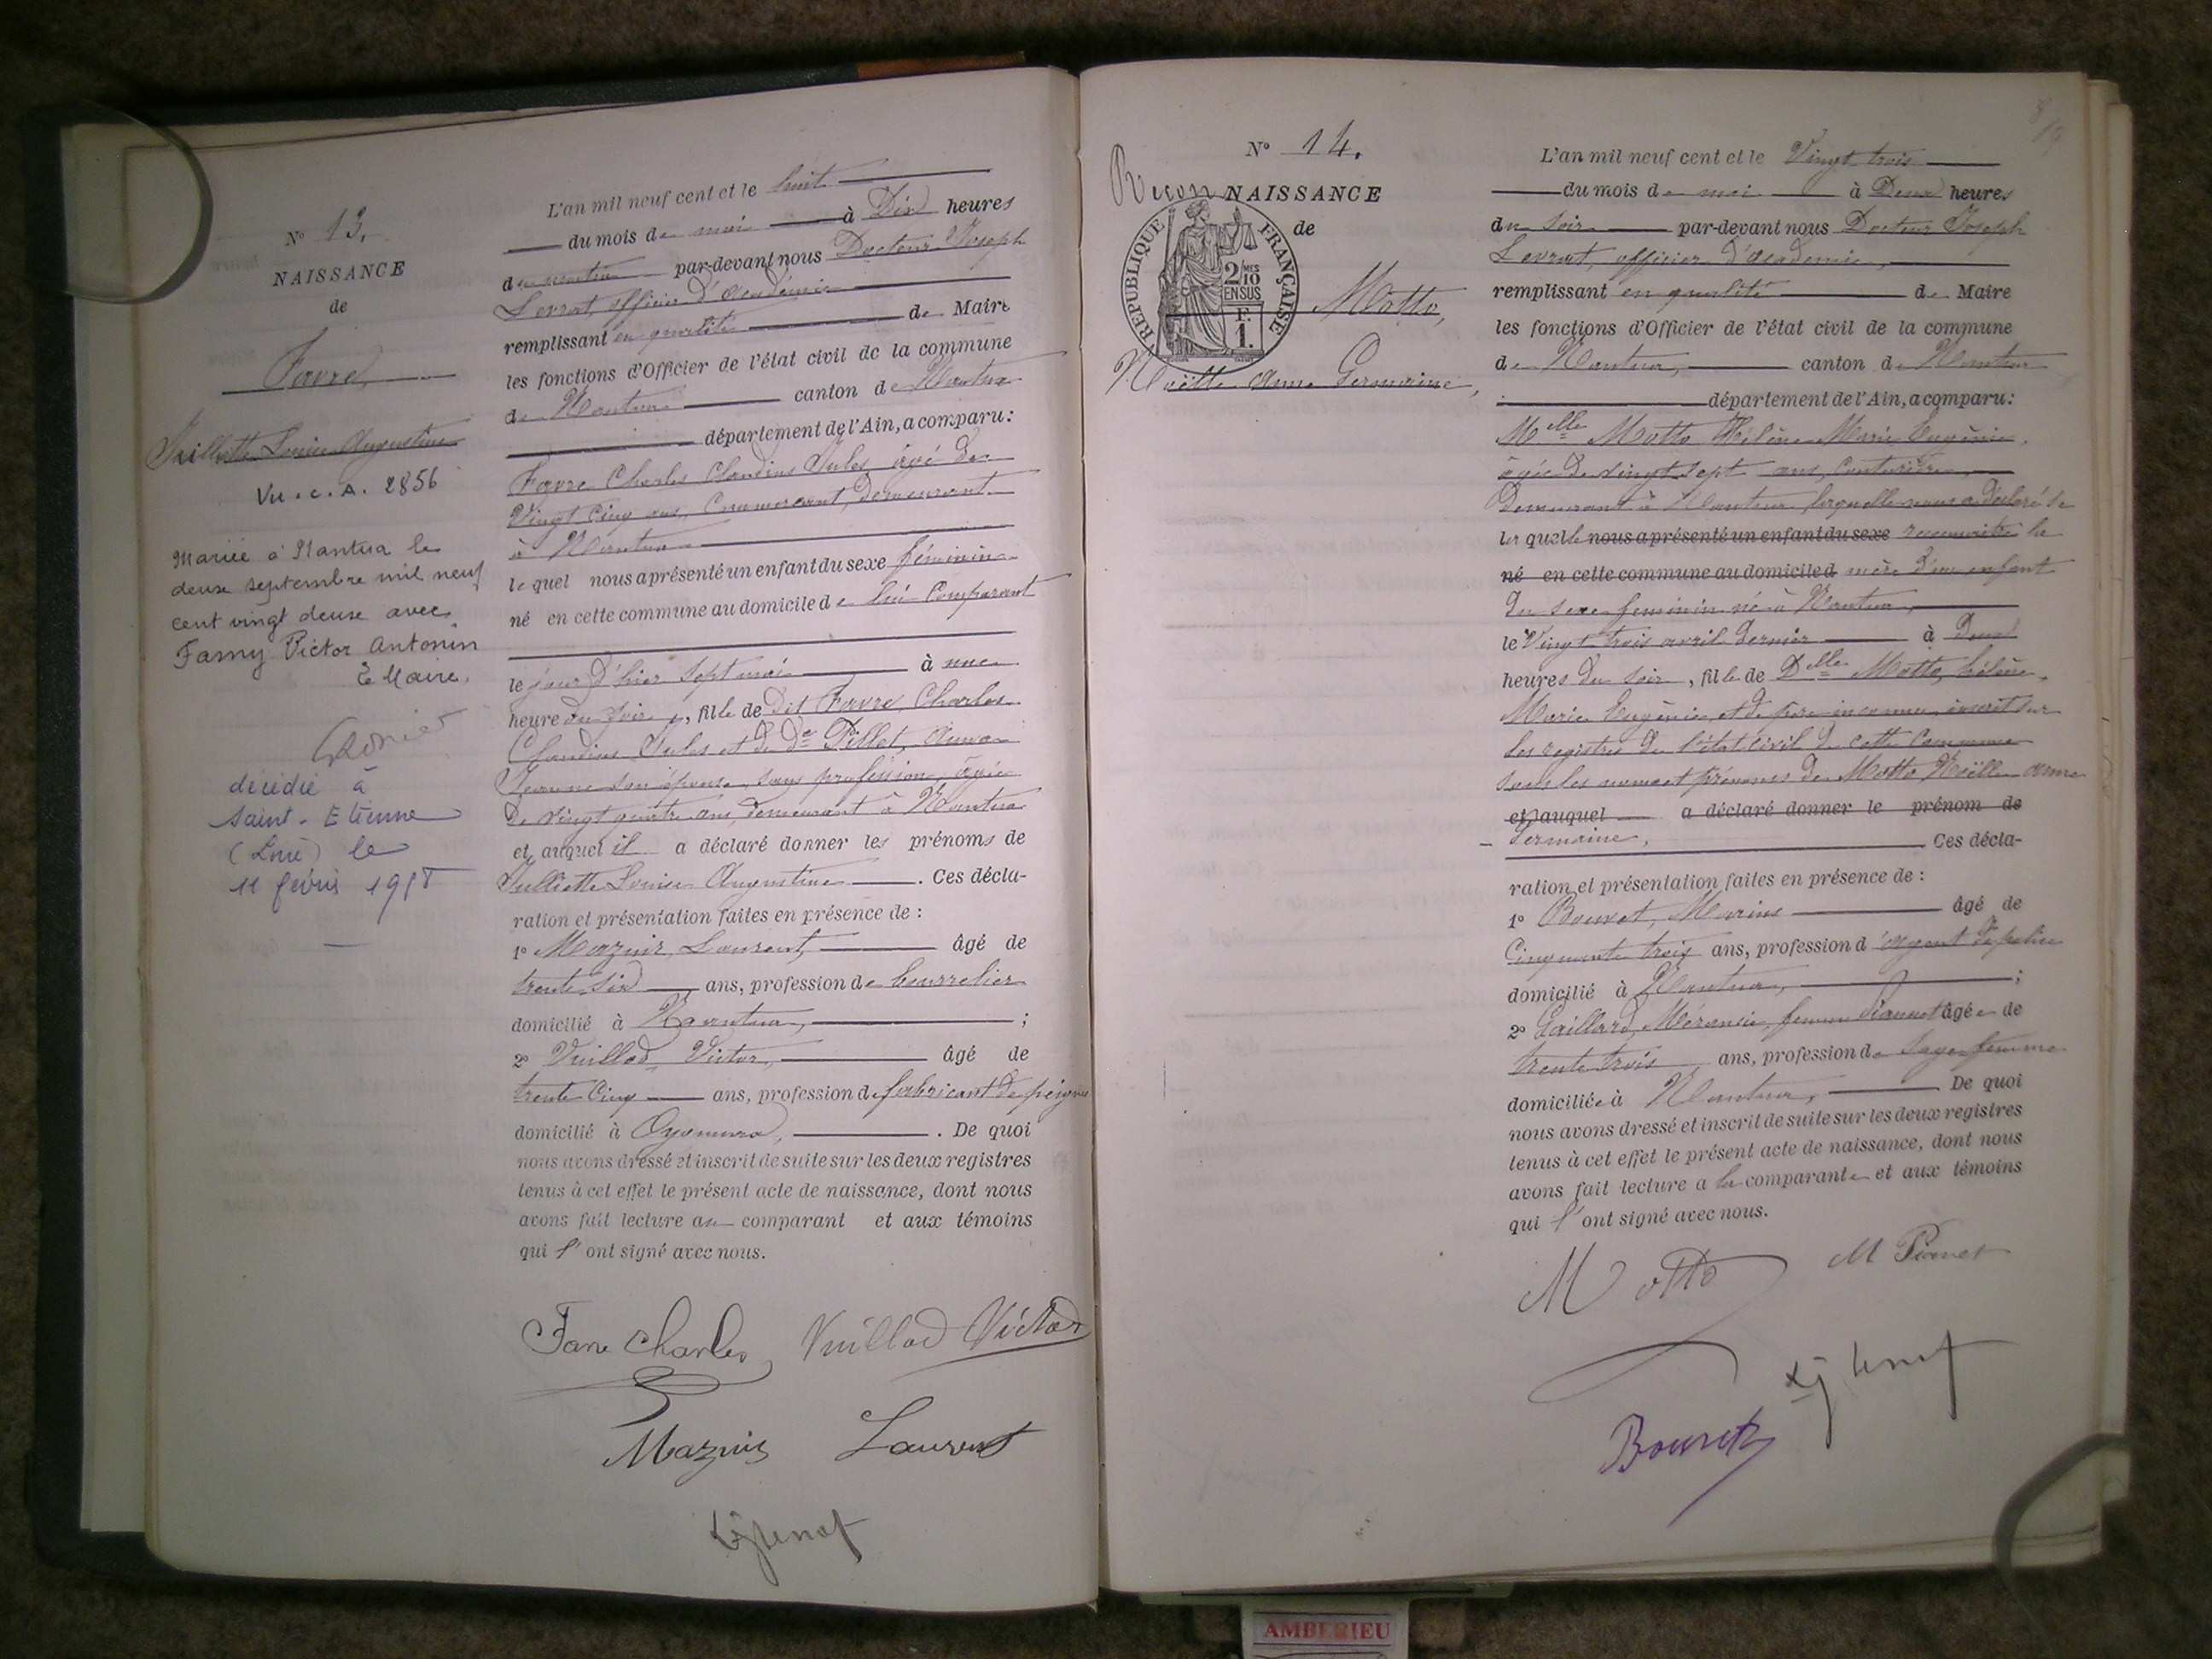 N° 13.
NAISSANCE
de
Favre,
Juilliette Louise Augustine
Vu. C. A. 2856
Mariée à Nantua le
deux septembre mil neuf
cent vingt deux avec
Famy Victor Antonin
Le Maire,
décédée à
Saint-Etienne
(Loire) le
11 février
L'an mil neuf cent et le huit
du mois de mai à Dix heures
du matin par-devant nous Docteur Joseph
Levrat, officier d'Académie
remplissant en qualité de Maire
les fonctions d'Officier de l'état civil de la commune
de Nantua canton de Nantua
département de l'Ain, a comparu:
Favre Charles Claudius Jules, âgé de
Vingt cinq ans, Commerçant, demeurant
à Nantua
lequel nous a présenté un enfant du sexe féminin
né en cette commune au domicile de lui Comparant
le jour d'hier sept mai à une
heure du soir, fille de dit Favre, Charles
Claudius Jules et de De Pillet,
Jeanne son épouse, sans profession, âgée
de vingt quatre ans, demeurant à Nantua
et auquel il a déclaré donner les prénoms de
Juilliette Louise Augustine. Ces décla-
ration et présentation faites en présence de :
1° Mazuir, Laurent, âgé de
trente six ans, profession de bourrelier
domicilié à Nantua, ;
2° Vuillod, Victor, âgé de
trente cinq ans, profession de fabricant de peignes
domicilié à Oyonnax, . De quoi
nous avons dressé et inscrit de suite sur les deux registres
tenus à cet effet le présent acte de naissance, dont nous
avons fait lecture au comparant et aux témoins
qui l'ont signé avec nous.
Favre Charles Vuillod Victor
Mazuir Laurent
N° 14.
Recon NAISSANCE
de
REPUBLIQUE FRANÇAISE
2/10 MES
EN SUS
F.
1.
Motto,
Noëlle Anne Germaine,
L'an mil neuf cent et le Vingt trois
du mois de mai à Deux heures
du soir par-devant nous Docteur Joseph
Levrat, officier d'académie,
remplissant en qualité de Maire
les fonctions d'Officier de l'état civil de la commune
de Nantua, canton de Nantua
département de l'Ain, a comparu:
Melle Motto Hélène Marie Eugénie,
âgée de vingt sept ans, couturière,
Demeurant à Nantua laquelle nous a déclaré se
laquelle nous a présenté un enfant du sexe reconnaître la
né en cette commune au domicile d mère d'un enfant
du sexe féminin né à Nantua,
le Vingt trois avril dernier à deux
heures du soir, fille de Delle Motto, hélène,
Marie Eugénie, et de père inconnu, inscrit sur
les registres de l'état civil de cette Commune
sous les noms et prénoms de Motto Noëlle Anne
et auquel a déclaré donner le prénom de
Germaine, Ces décla-
ration et présentation faites en présence de :
1° Bouvet, Marius âgé de
Cinquante trois ans, profession d'agent de police
domicilié à Nantua, ;
2° Gaillard, femme âgée de
trente trois ans, profession de sage femme
domiciliée à Nantua, De quoi
nous avons dressé et inscrit de suite sur les deux registres
tenus à cet effet le présent acte de naissance, dont nous
avons fait lecture a la comparante et aux témoins
qui l'ont signé avec nous.
Motto
AMBERIEU